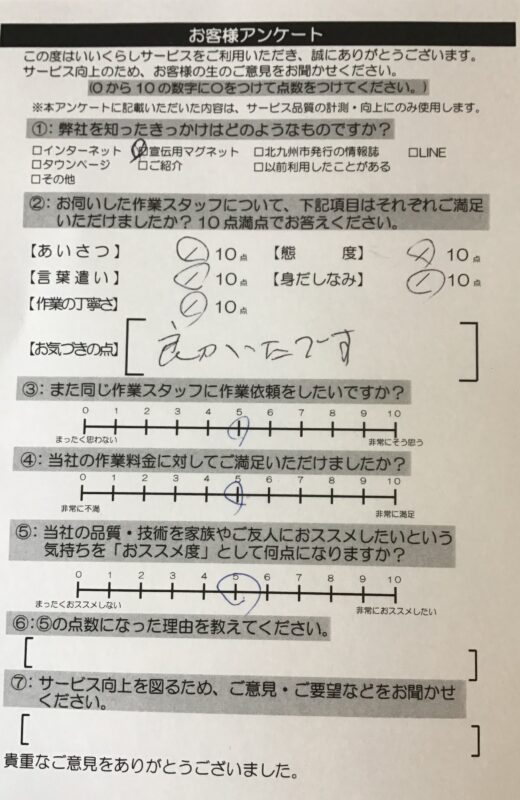 お客様アンケート
この度はいいくらしサービスをご利用いただき、誠にありがとうございます。
サービス向上のため、お客様の生のご意見をお聞かせください。
(0から10の数字に○をつけて点数をつけてください。)
※本アンケートに記載いただいた内容は、サービス品質の計測・向上にのみ使用します。
①:弊社を知ったきっかけはどのようなものですか?
□インターネット □宣伝用マグネット □北九州市発行の情報誌 □LINE
□タウンページ □ご紹介 □以前利用したことがある
□その他
②:お伺いした作業スタッフについて、下記項目はそれぞれご満足
いただけましたか?10点満点でお答えください。
【あいさつ】 10点 【態度】 10点
【言葉遣い】 10点 【身だしなみ】 10点
【作業の丁寧さ】 10点
【お気づきの点】 良かいたです
③:また同じ作業スタッフに作業依頼をしたいですか?
0 1 2 3 4 5 6 7 8 9 10
まったく思わない 非常にそう思う
④:当社の作業料金に対してご満足いただけましたか?
0 1 2 3 4 5 6 7 8 9 10
非常に不満 非常に満足
⑤:当社の品質・技術を家族やご友人におススメしたいという
気持ちを「おススメ度」として何点になりますか?
0 1 2 3 4 5 6 7 8 9 10
まったくおススメしない 非常におススメしたい
⑥:⑤の点数になった理由を教えてください。
⑦:サービス向上を図るため、ご意見・ご要望などをお聞かせ
ください。
貴重なご意見をありがとうございました。